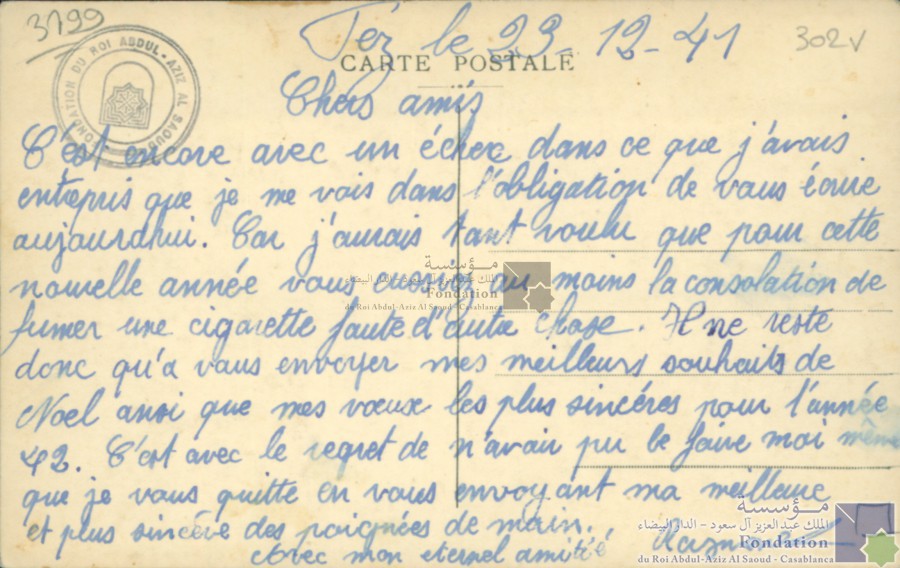 3199
302V
Fez le 23-12-41
CARTE POSTALE
FONDATION DU ROI ABDUL-AZIZ AL SAOUD
Chers amis
C'est encore avec un échec dans ce que j'avais
entrepris que je me vois dans l'obligation de vous écrire
aujourdhui. Car j'aurais tant voulu que pour cette
nouvelle année vous au moins la consolation de
fumer une cigarette faute d'autre chose. Il ne reste
donc qu'a vous envoyer mes meilleurs souhaits de
Noel ansi que mes vœux les plus sincéres pour l'année
42. C'est avec le regret de n'avoir pu le faire moi même
que je vous quitte en vous envoyant ma meilleure
et plus sincére des poignées de main.
Avec mon eternel amitié
مؤسسة
الملك عبد العزيز آل سعود - الدار البيضاء
Fondation
du Roi Abdul-Aziz Al Saoud - Casablanca
مؤسسة
الملك عبد العزيز آل سعود - الدار البيضاء
Fondation
du Roi Abdul-Aziz Al Saoud - Casablanca